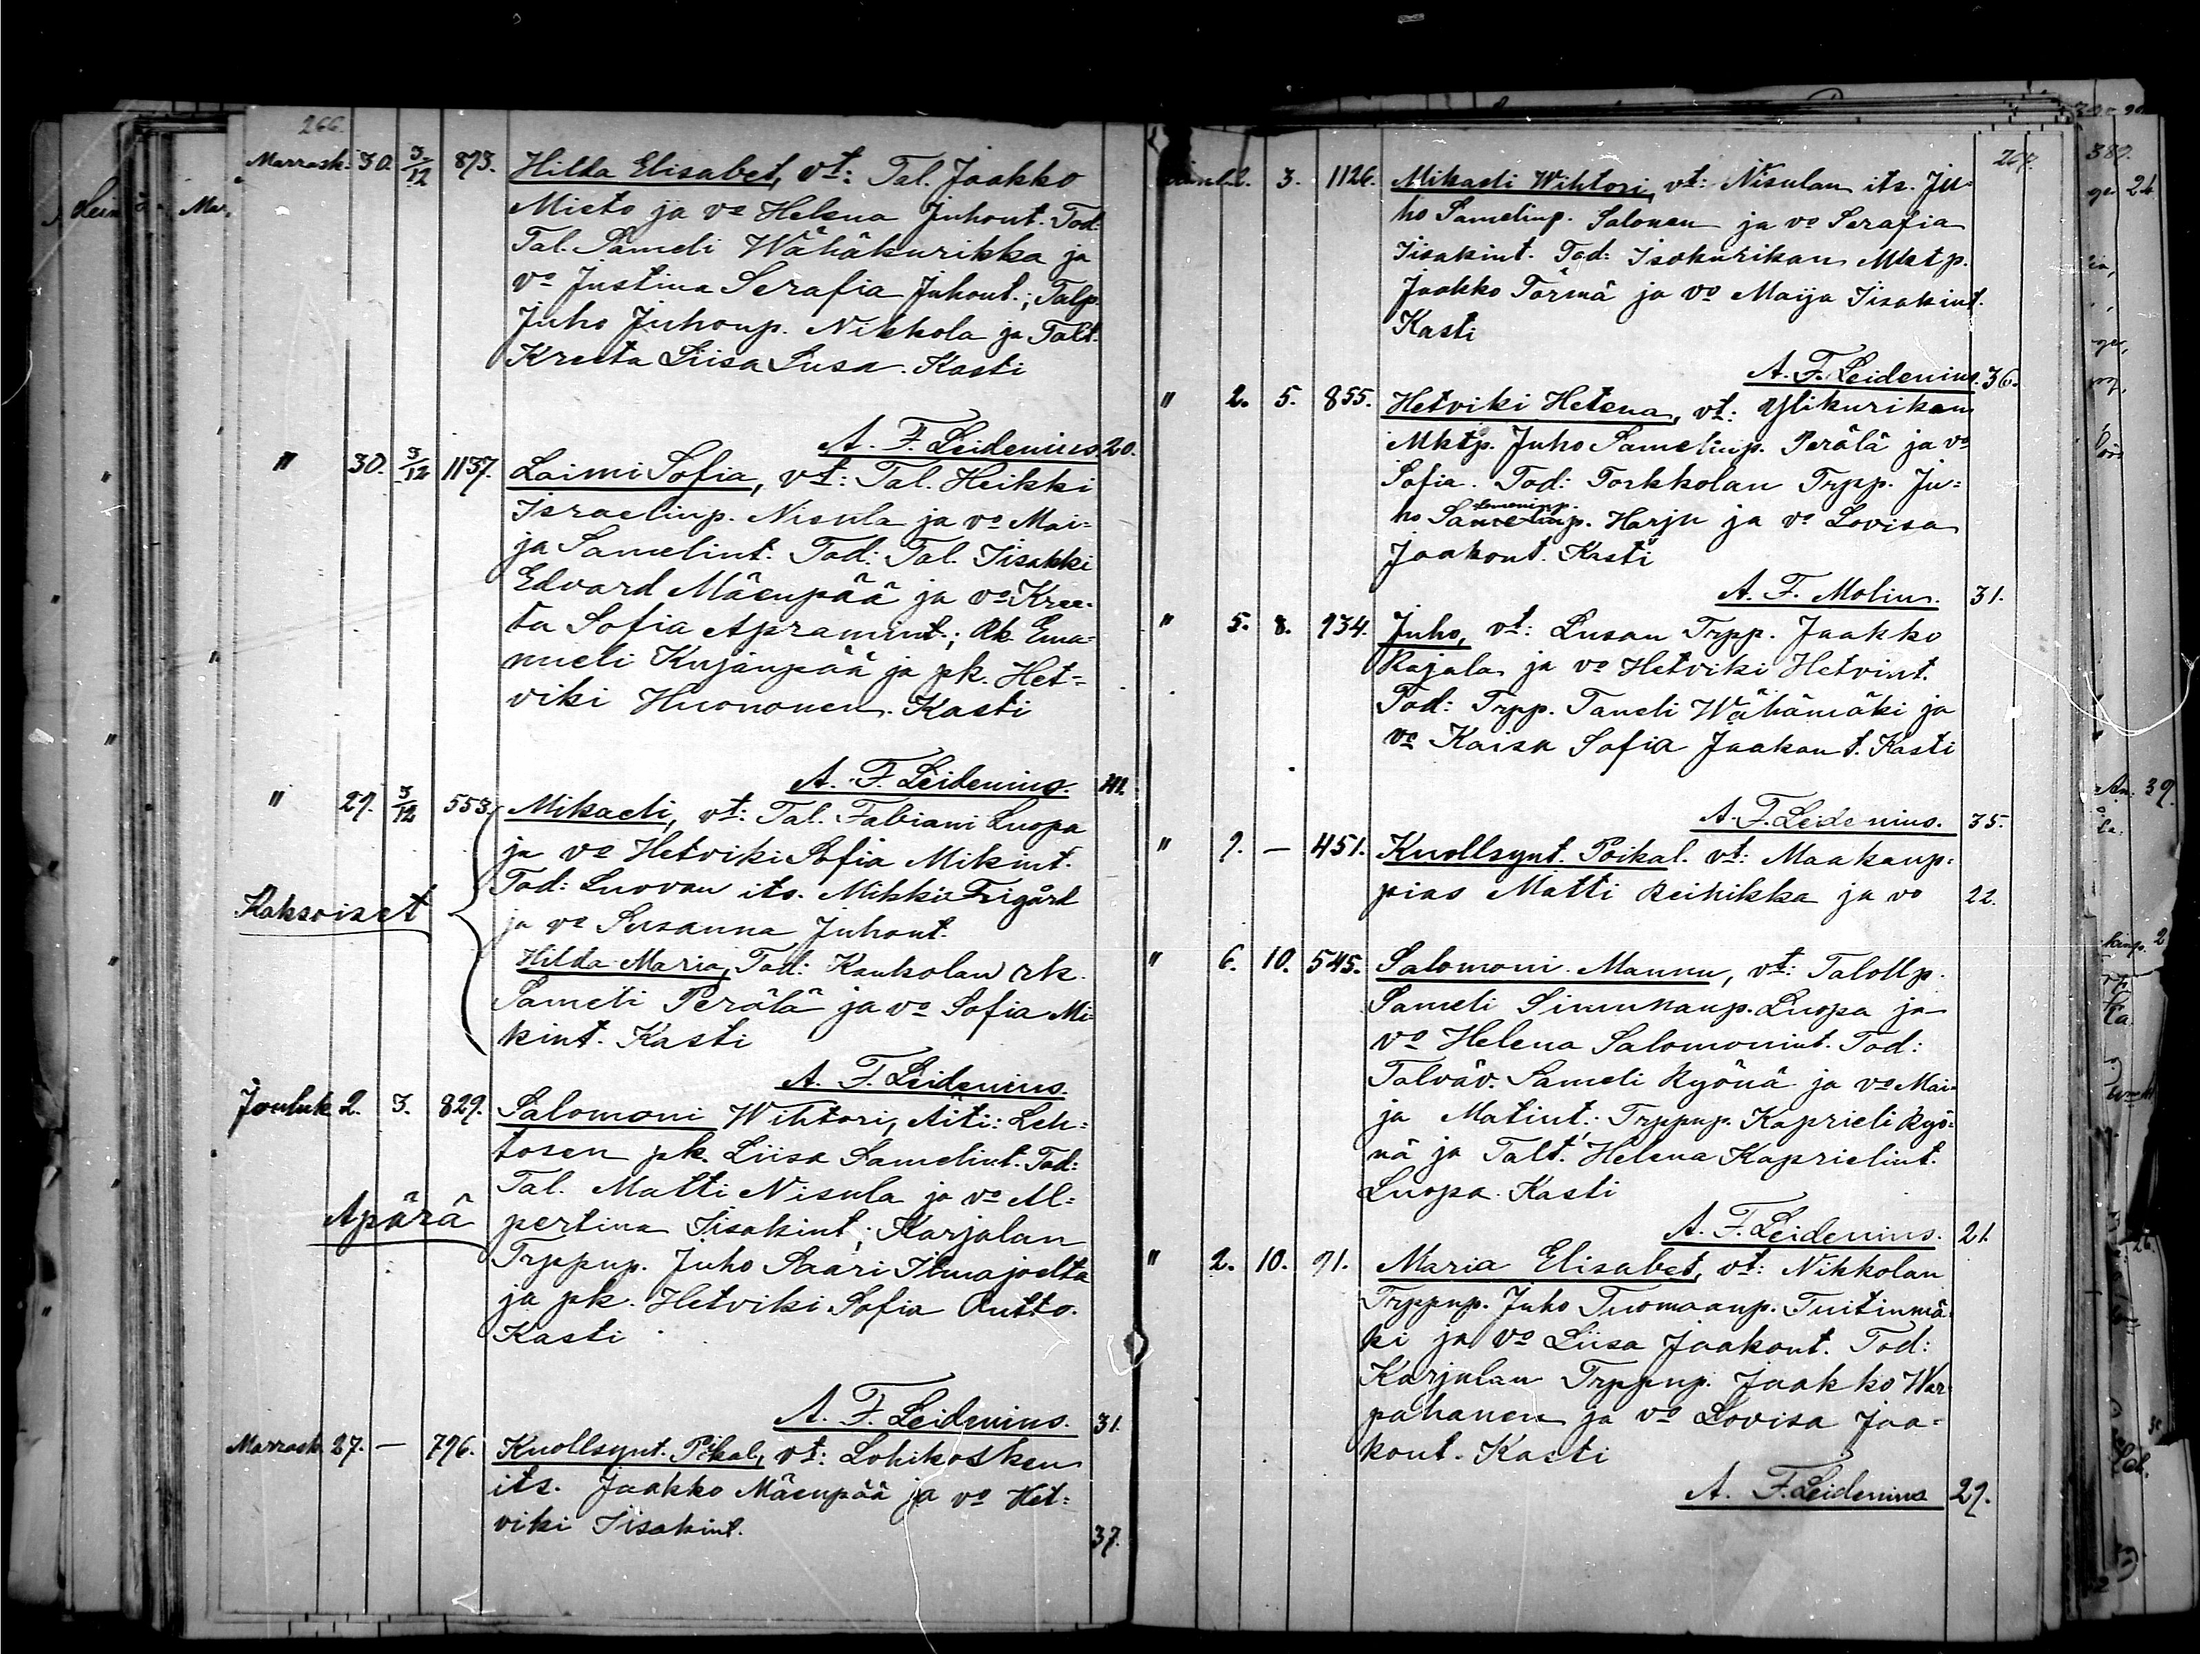 266.
Marrask. 30. 3/12 873. Hilda Elisabet, vt: Tal. Jaakko
Mieto ja vo Helena Juhont. Tod:
Tal. Sameli Wähäkurikka ja
vo Justina Serafia Juhont.; Talp.
Juho Juhonp. Nikkola ja Talt.
Kreeta Liisa Lusa. Kasti
A. F. Leidenius. 20.
" 30. 3/12 1137. Laimi Sofia, vt: Tal. Heikki
Israelinp. Nisula ja vo Mai=
ja Samelint. Tod: Tal. Iisakki
Edvard Mäenpää ja vo Kree=
ta Sofia Apramint.; Rk. Ema=
nueli Kujanpää ja pk. Het=
viki Huononen. Kasti
A. F. Leidenius.
" 29. 3/12 553. Mikaeli, vt: Tal. Fabiani Luopa
ja vo Hetviki Sofia Mikint.
Tod: Luovan its. Mikki Frigård
Kaksoiset
ja vo Susanna Juhont.
Hilda Maria, Tod: Kankolan rk.
Sameli Perälä ja vo Sofia Mi=
kint. Kasti
A. F. Leidenius.
Jouluk. 2. 3. 829. Salomoni Wihtori, Äiti: Leh=
tosen pk. Liisa Samelint. Tod:
Tal. Matti Nisula ja vo Al=
Apärä
pertina Iisakint.; Karjalan
Trppnp. Juho Saari Ilmajoelta
ja pk. Hetviki Sofia Antto.
Kasti
A. F. Leidenius. 31.
Marrask. 27. — 796. Kuollsynt. Poikal., vt: Lohikosken
its. Jaakko Mäenpää ja vo Het=
viki Iisakint.
37.
267.
2. 3. 1126. Mikaeli Wihtori, vt: Nisulan its. Ju=
ho Samelinp. Salonen ja vo Serafia
Iisakint. Tod: Isokurikan Mktp.
Jaakko Törmä ja vo Maija Iisakint.
Kasti
A. F. Leidenius. 36.
" 2. 5. 855. Hetviki Helena, vt: Ylikurikan
Mktp. Juho Samelinp. Perälä ja vo
Sofia. Tod: Torkkolan Trpp. Ju=
ho Samelinp. Harju ja vo Lovisa
Jaakont. Kasti
A. F. Molin. 31.
" 5. 8. 934. Juho, vt: Lusan Trpp. Jaakko
Rajala ja vo Hetviki Hetvint.
Tod: Trpp. Taneli Wähämäki ja
vo Kaisa Sofia Jaakont. Kasti
A. F. Leidenius. 35.
" 9. — 451. Kuollsynt. Poikal. vt: Maakaup=
pias Matti Reinikka ja vo 22.
" 6. 10. 545. Salomoni Mannu, vt: Talollp.
Sameli Simunanp. Luopa ja
vo Helena Salomonint. Tod:
Talväv. Sameli Ryönä ja vo Mai=
ja Matint.; Trppnp. Kaprieli Ryö=
nä ja Talt. Helena Kaprielint.
Luopa. Kasti
A. F. Leidenius. 21.
" 2. 10. 91. Maria Elisabet, vt: Nikkolan
Trppnp. Juho Tuomaanp. Tuitinmä=
ki ja vo Liisa Jaakont. Tod:
Karjalan Trppnp. Jaakko War=
pahanen ja vo Lovisa Jaa=
kont. Kasti
A. F. Leidenius 29.